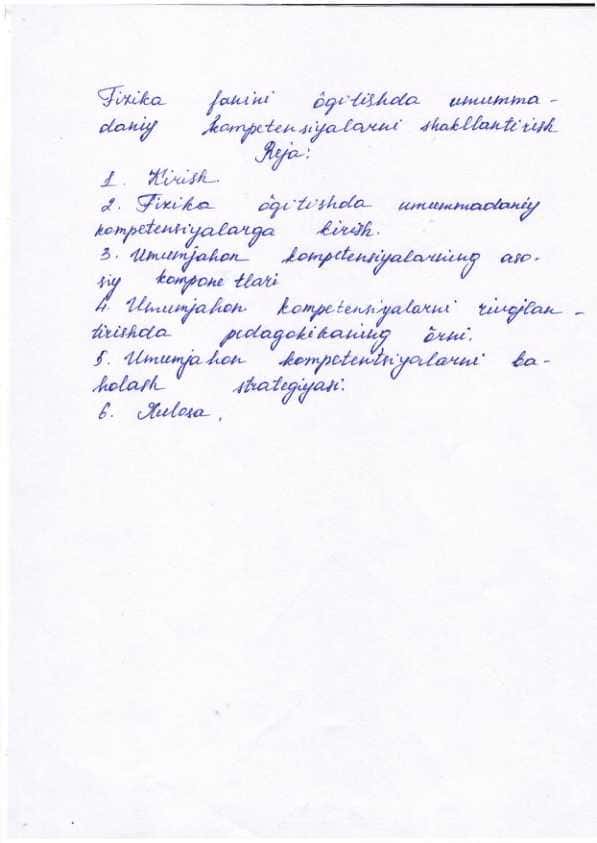 Fizika fanini ôgitishda umumma-
daniy kompetensiyalarni shakllantirish
Reja:
1. Kirish.
2. Fizika ôgitishda umummadaniy
kompetensiyalarga kirish.
3. Umumjahon kompetensiyalarining aso-
siy kompone tlari
4. Umumjahon kompetensiyalarni rivojlan-
tirishda pedagokikaning ôrni.
5. Umumjahon kompetentsiyalarni ba-
holash strategiyasi.
6. Xulosa.